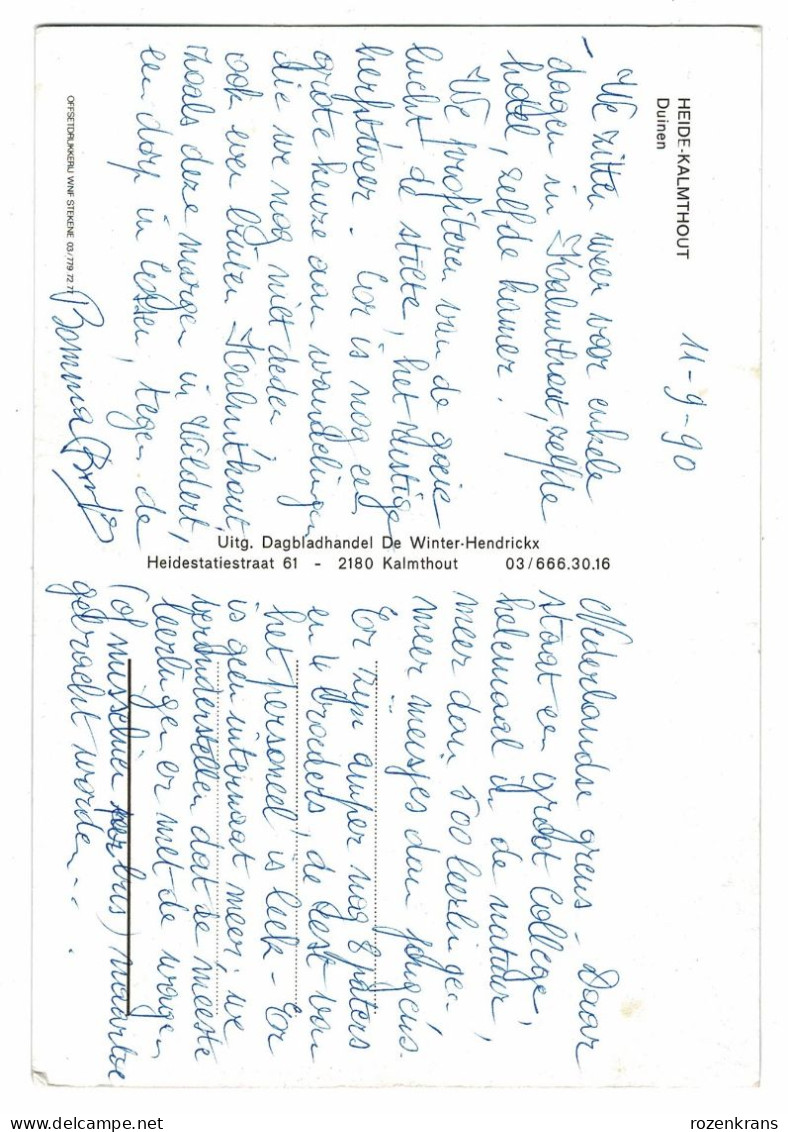 HEIDE-KALMTHOUT
Duinen
11-9-90
We zitten weer voor enkele
dagen in Kalmthout, zelfde
hotel, zelfde kamer.
We profiteren van de goeie
lucht, de stilte, het rustige
herfstweer - Er is nog een
grote keuze aan wandelingen
die we nog niet deden
ook even buiten Kalmthout,
zoals deze morgen in Wildert,
een dorp in Essen, tegen de
Bomma
Nederlandse grens - Daar
staat een groot College,
helemaal in de natuur,
meer dan 500 leerlingen
meer meisjes dan jongens.
Er zijn amper nog 8 paters
en 4 broeders, de rest van
het personeel is leek - Er
is geen internaat meer; we
veronderstellen dat de meeste
leerlingen er met de wagen
(of misschien per bus) naartoe
gebracht worden...
Uitg. Dagbladhandel De Winter-Hendrickx
Heidestatiestraat 61 - 2180 Kalmthout 03/666.30.16
OFFSETDRUKKERIJ WNF STEKENE 03/779 72 77
rozenkrans